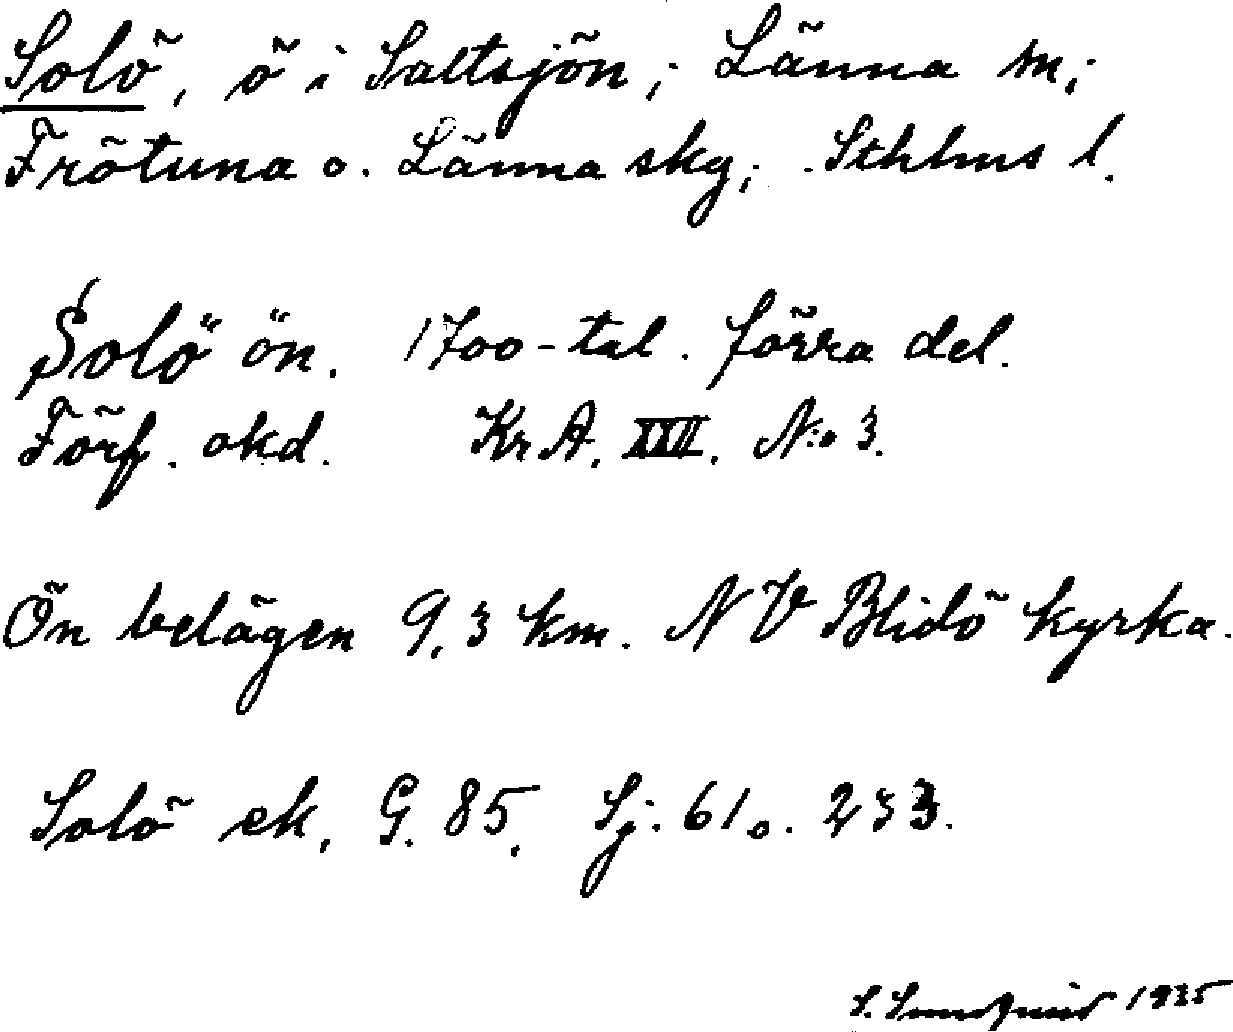 Solö, ö i Saltsjön; Länna sn;
Frötuna o. Länna skg; Sthlms l.
Solö ön. 1700-tal. förra del.
Förf. okd. KrA. XXII. N:o 3.
Ön belägen 9,3 km. NV Blidö kyrka.
Solö ek. G. 85. Sj. 61 o. 233.
S. 1935